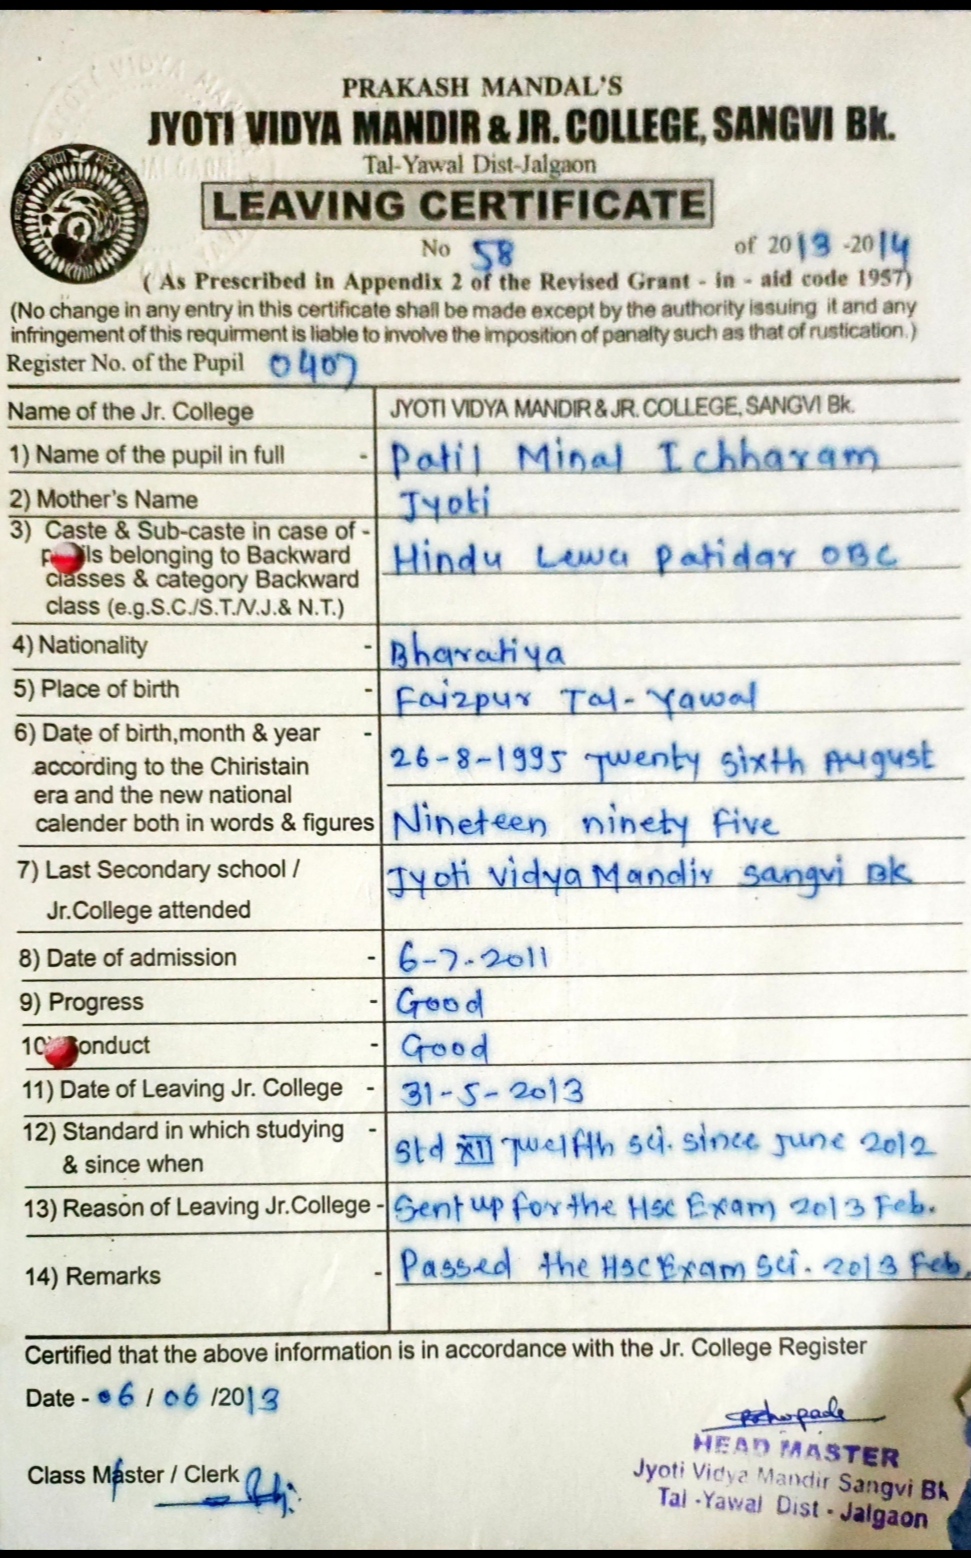 PRAKASH MANDAL'S
JYOTI VIDYA MANDIR & JR. COLLEGE, SANGVI Bk.
Tal-Yawal Dist-Jalgaon
LEAVING CERTIFICATE
No 58 of 2013 -2014
( As Prescribed in Appendix 2 of the Revised Grant - in - aid code 1957)
(No change in any entry in this certificate shall be made except by the authority issuing it and any
infringement of this requirment is liable to involve the imposition of panalty such as that of rustication.)
Register No. of the Pupil 0407
Name of the Jr. College JYOTI VIDYA MANDIR & JR. COLLEGE, SANGVI Bk.
1) Name of the pupil in full - Patil Minal Ichharam
2) Mother's Name Jyoti
3) Caste & Sub-caste in case of -
belonging to Backward Hindu Lewa Patidar OBC
classes & category Backward
class (e.g.S.C./S.T./V.J.& N.T.)
4) Nationality - Bharatiya
5) Place of birth - Faizpur Tal- Yawal
6) Date of birth,month & year -
according to the Chiristain 26-8-1995 Twenty sixth August
era and the new national
calender both in words & figures Nineteen ninety five
7) Last Secondary school / Jyoti Vidya Mandir Sangvi Bk
Jr.College attended
8) Date of admission - 6-7-2011
9) Progress - Good
10) Conduct - Good
11) Date of Leaving Jr. College - 31-5-2013
12) Standard in which studying - Std XII Twelfth sci. since June 2012
& since when
13) Reason of Leaving Jr.College - Sent up for the Hsc Exam 2013 Feb.
14) Remarks - Passed the HSC Exam Sci. 2013 Feb.
Certified that the above information is in accordance with the Jr. College Register
Date - 06 / 06 /2013
HEAD MASTER
Class Master / Clerk
Jyoti Vidya Mandir Sangvi Bk
Tal -Yawal Dist - Jalgaon